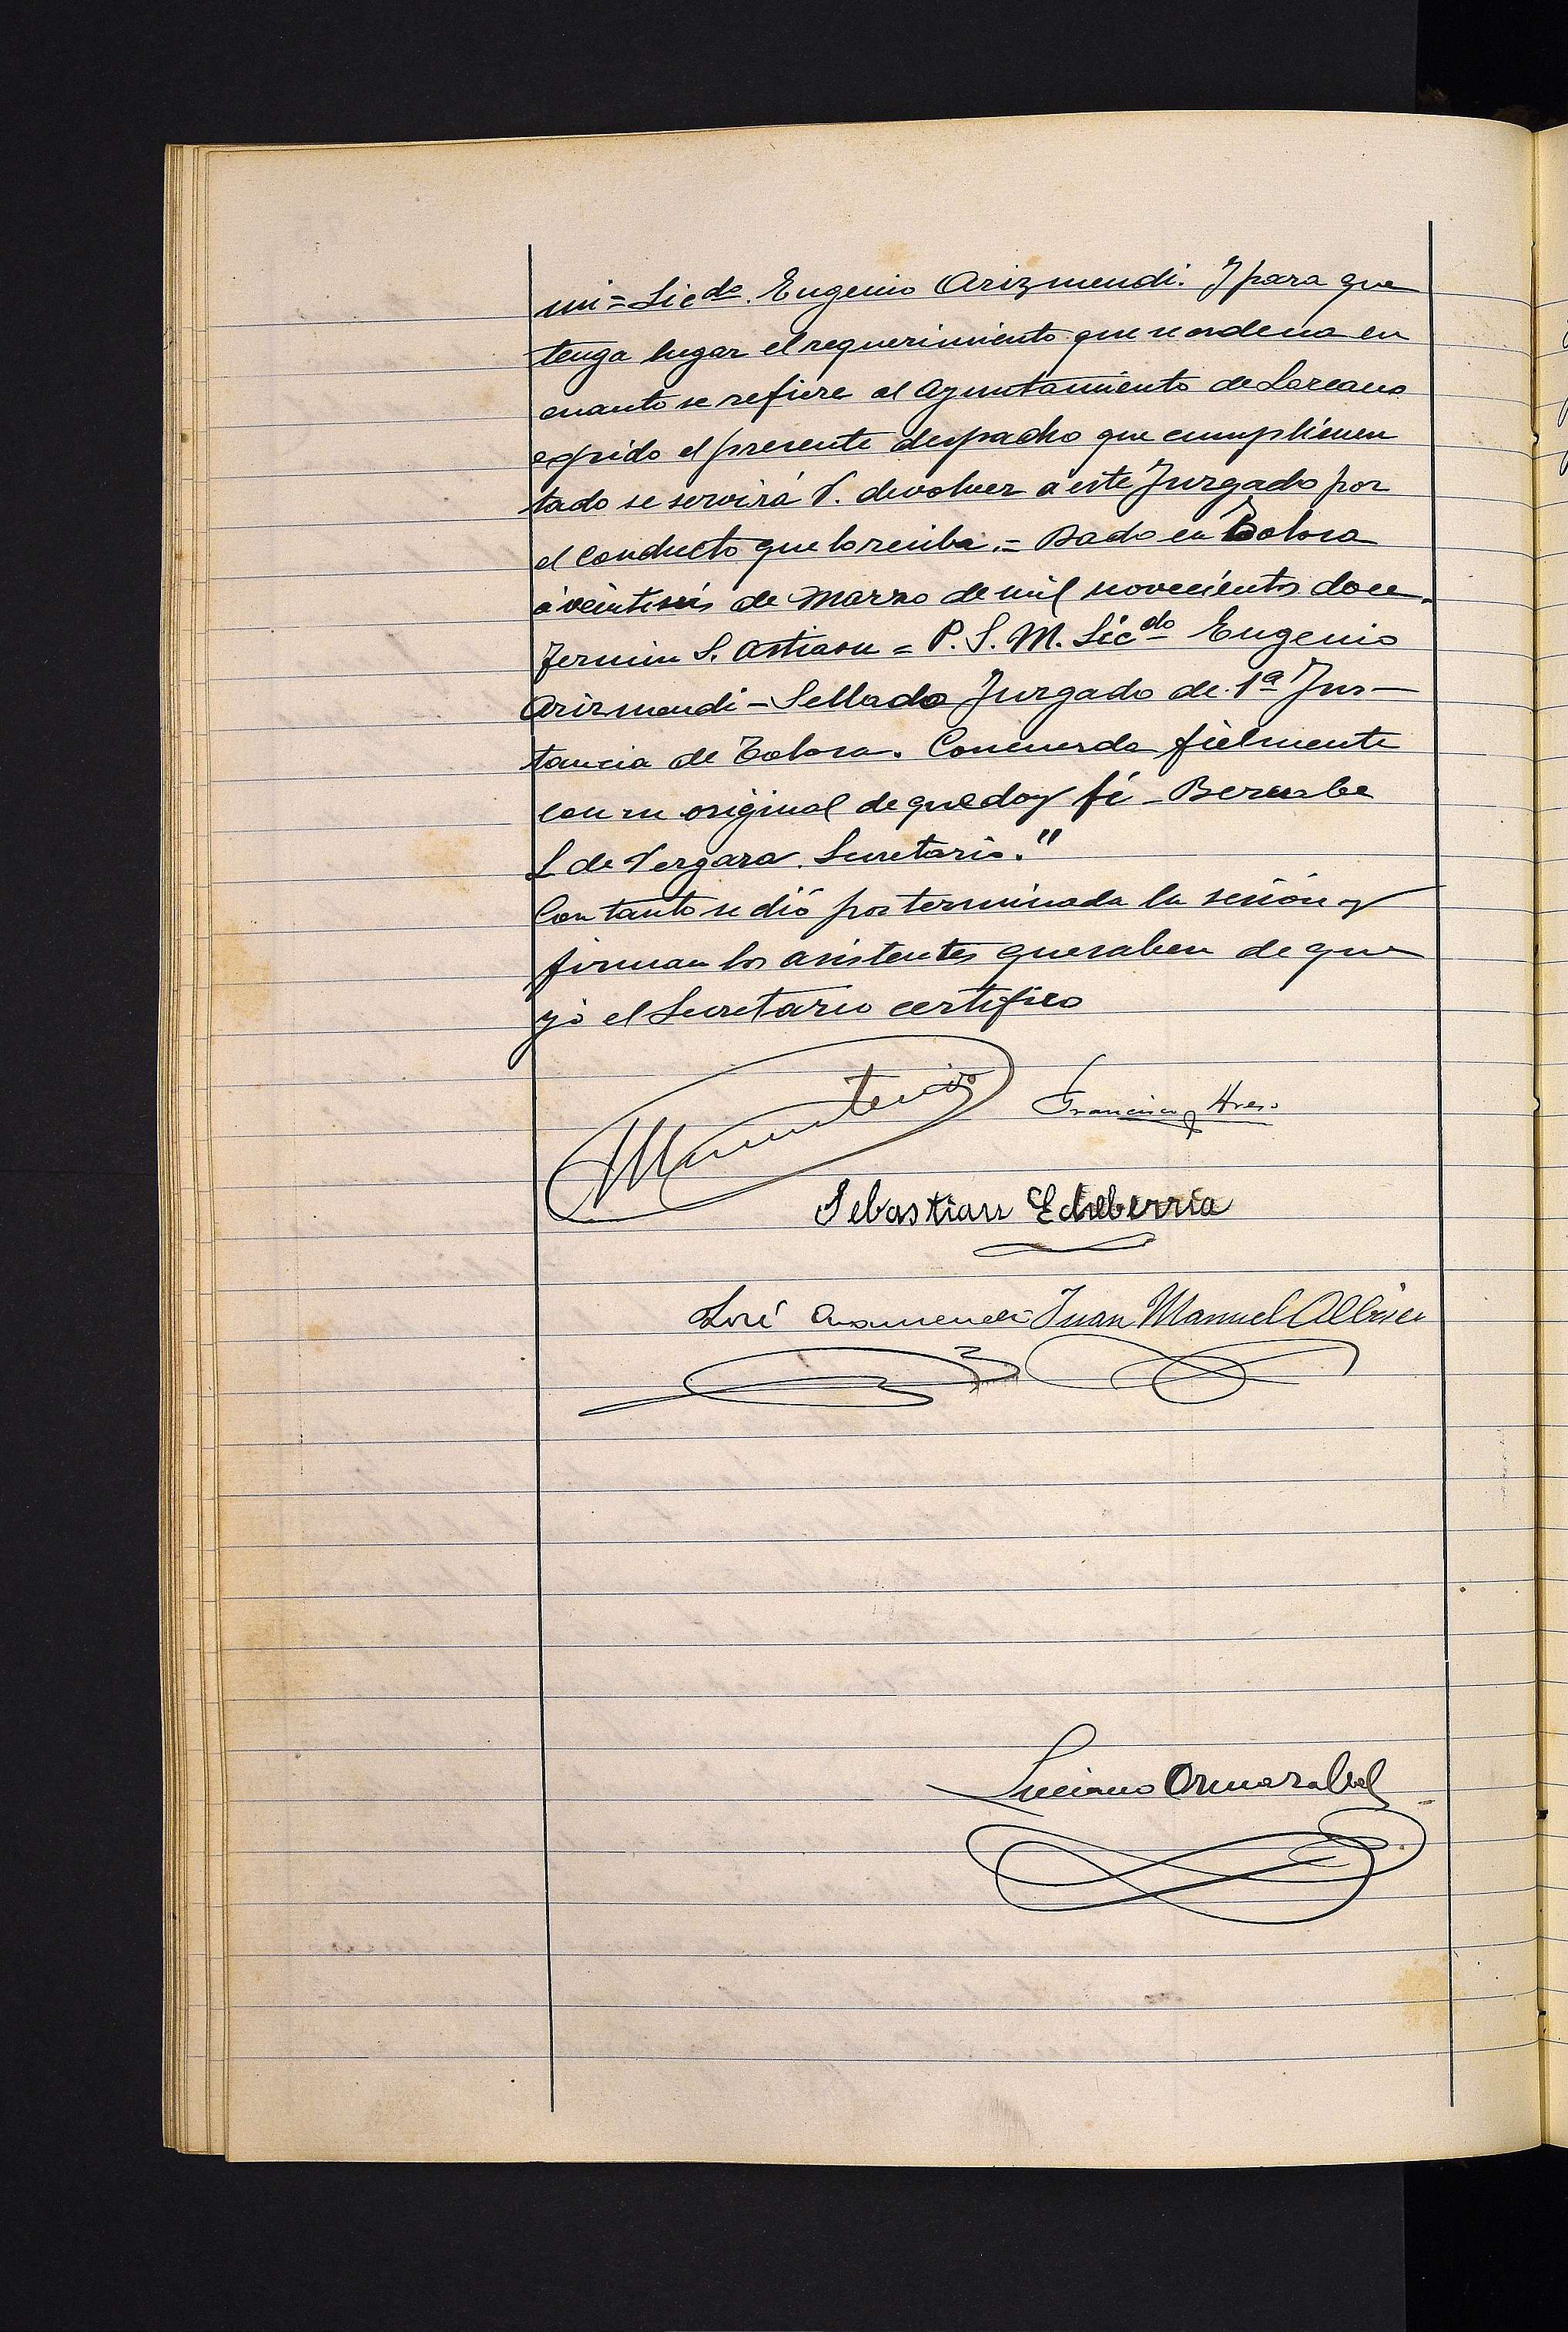 mi = Licdo. Eugenio Arizmendi. Y para que
tenga lugar el requerimiento que se ordena en
cuanto se refiere al Ayuntamiento de Lazcano
expido el presente despacho que cumplimen
tado se servirá V. devolver a este Juzgado por
el conducto que lo reciba. = Dado en Tolosa
á veintiseis de Marzo de mil novecientos doce.
Fermin S. = P. S. M. Licdo Eugenio
Arizmendi - Sellado Juzgado de 1ª Ins-
tancia de Tolosa. Concuerda fielmente
con su original de que doy fé - Bernabe
L de Vergara. Secretario."
Con tanto se dió por terminada la sesión y
firman los asistentes que saben de que
yó el Secretario certifico
Francisco
Sebastian Echeberria
José Juan Manuel
Luciano Ormazabal